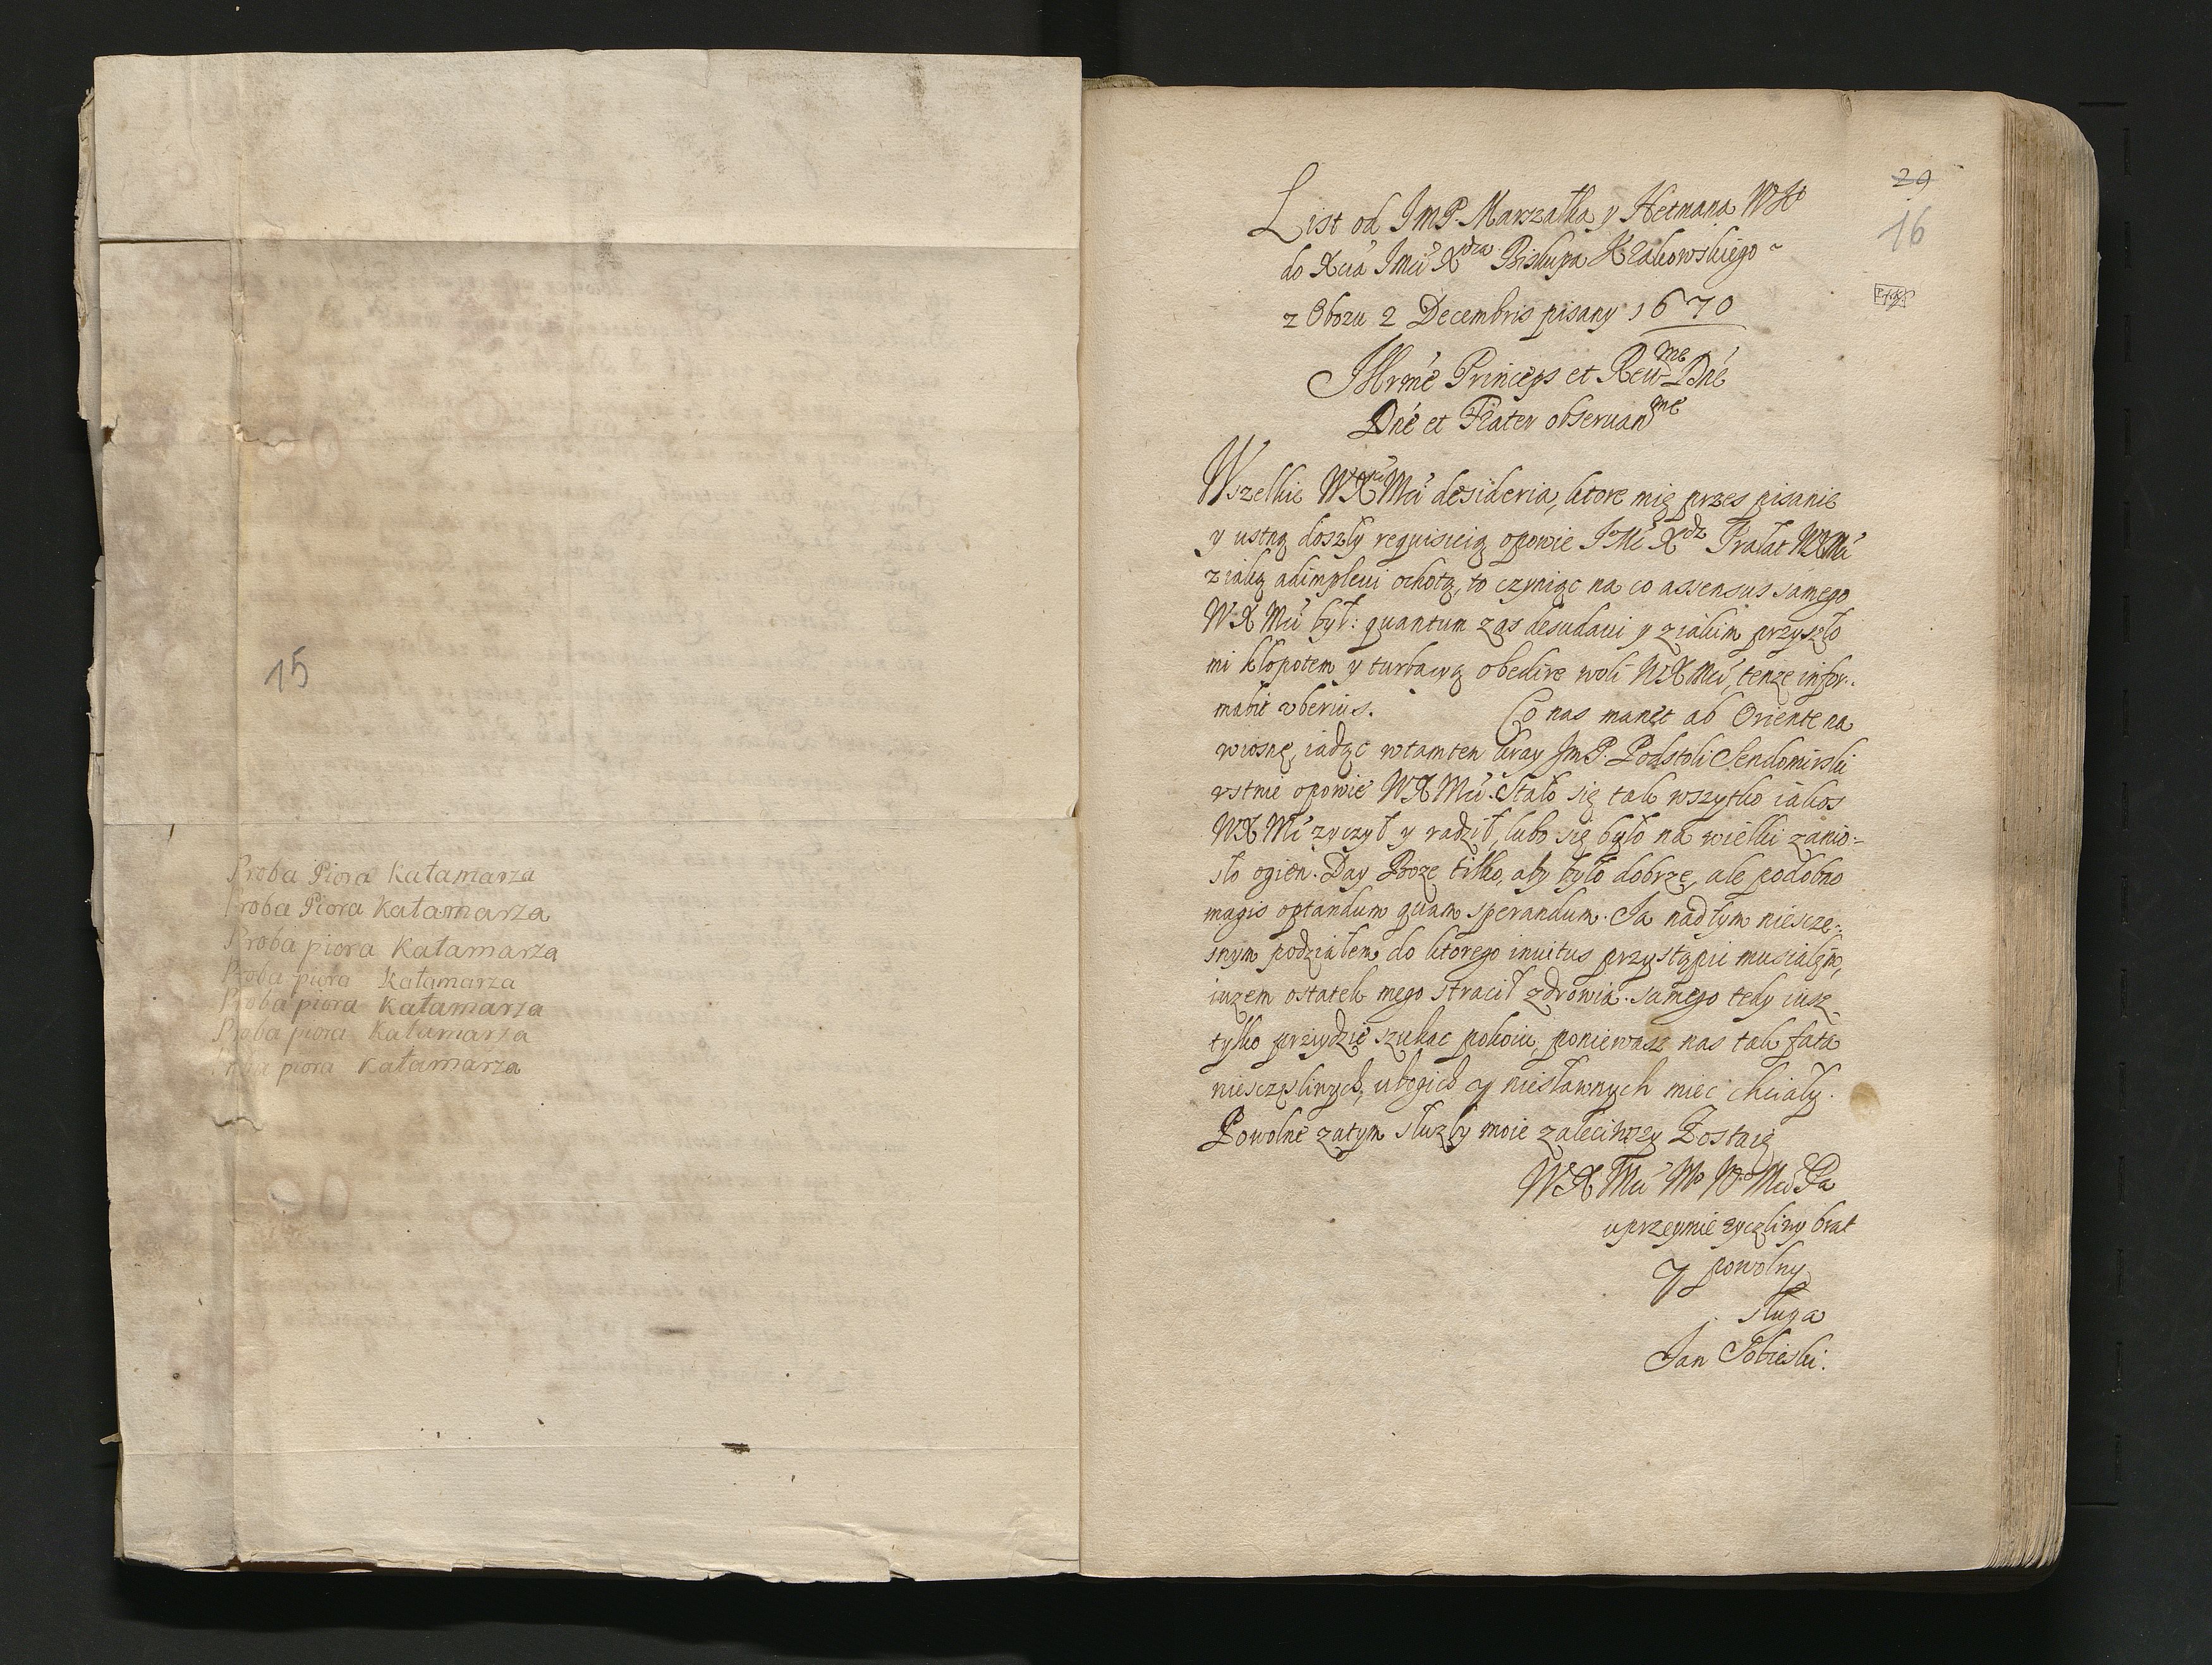 15
Proba Piora Kałamarza
Proba Piora Kałamarza
Proba piora Kałamarza
Proba piora Kałamarza
Proba piora Kałamarza
Proba piora Kałamarza
Proba piora Kałamarza
29
16
List od JmP. Marszałka y Hetmana WK
do Xcia Jmci Xdza Biskupa Krakowskiego
z Obozu 2 Decembris pisany 1670
Illrme Princeps et Reu-me Dne
Dne et Frater obseruanme
Wszelkie WXMci desideria, ktore mię przes pisanie
y ustną doszły requisicią opowie JMc Xdz Prałat WXMci
z iaką adimpleui ochotą, to czyniąc na co assensus samego
WXMci był: quantum zas desudaui y z iakim przyszło
mi kłopotem y turbacyą obedire woli WXMci, tenze infor-
mabit vberius. Co nas manet ab Oriente na
wiosnę, iadąc w tamten kray JmP. Podstoli Sendomirski
vstnie opowie WXMci. Stało się tak wszytko iakos
WXMc zyczył y radził, lubo się było na wielki zanio-
sło ogien. Day Boze tilko, aby było dobrze, ale podobno
magis optandum quam sperandum. Ja nad tym niescze-
snym podziałem do ktorego inuitus przystąpic musialem,
iuzem ostatek mego stracił zdrowia. samego tedy iusz
tylko przydzie szukac pokoiu, poniewasz nas tak fata
niesczęsliwych, ubogich y niesławnych miec chciały.
Powolne zatym słuzby moie zaleciwszy Zostaię
WXMci M W Mci Pa
uprzeymie zyczliwy brat
y powolny
sługa
Jan Sobieski.